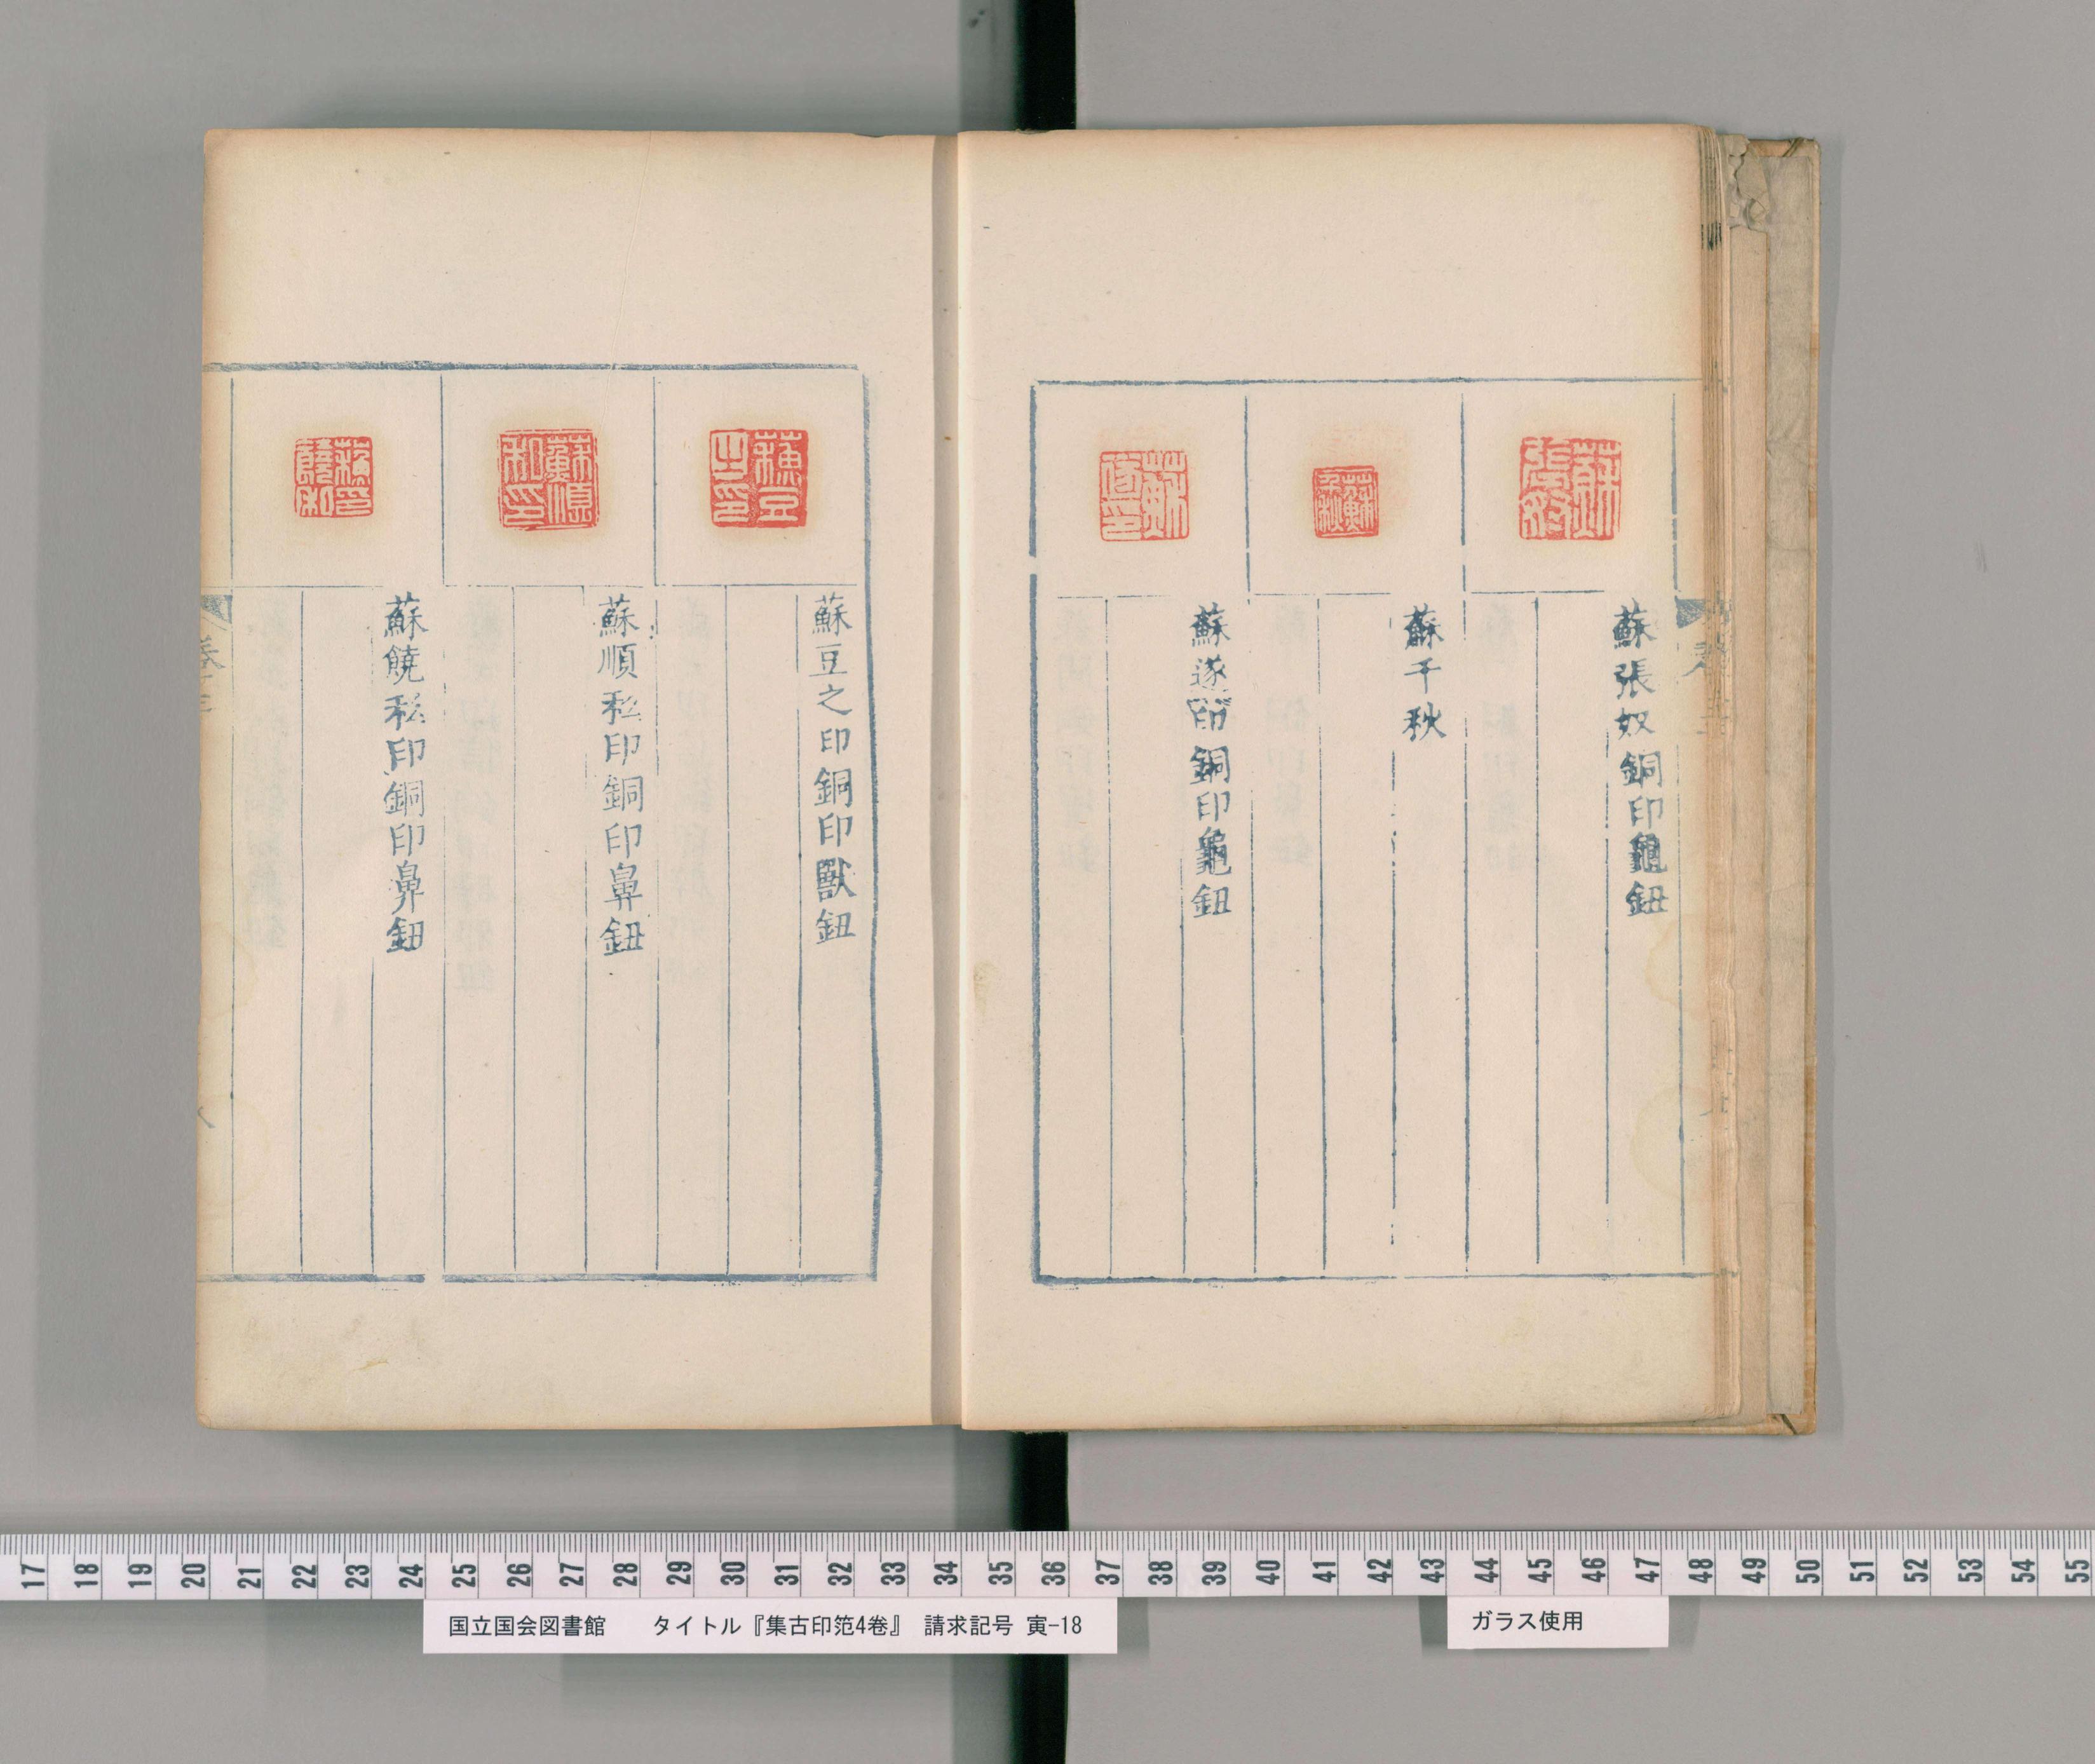 蘇張奴銅印龜鈕
蘇千秋
蘇遂印銅印龜鈕
蘇豆之印銅印獸鈕
蘇順私印銅印鼻鈕
蘇饒私印銅印鼻鈕
17 18 19 20 21 22 23 24 25 26 27 28 29 30 31 32 33 34 35 36 37 38 39 40 41 42 43 44 45 46 47 48 49 50 51 52 53 54 55
国立国会図書館 タイトル『集古印笵4巻』 請求記号 寅-18
ガラス使用